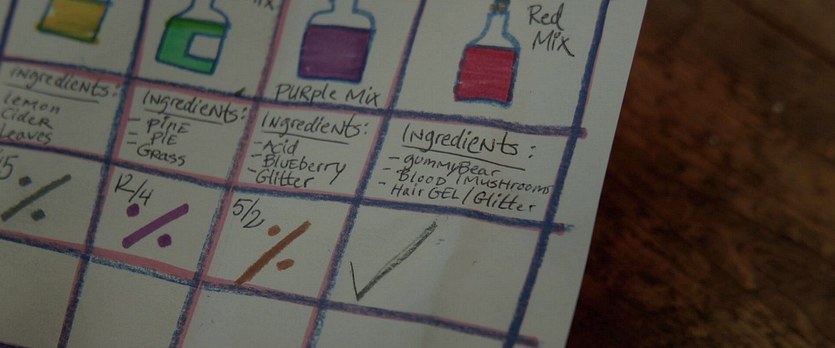 Red
Mix
PURPLE Mix
INgredieNts:
Lemon
Cider
Leaves
INgredieNts:
- PINE
- PIE
- GRASS
INgredieNts:
- Acid
- BLUEBERRY
- GLitter
INgredieNts:
- gummyBear
- BLOOD / MUSHROOMS
- Hair GEL / GLitter
12/4
5/2